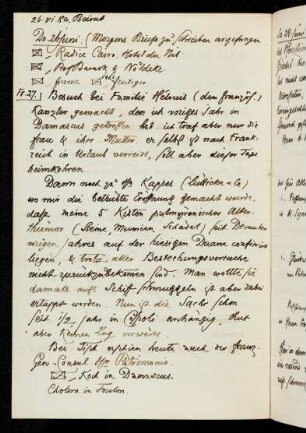 26. VI. 84. Beirut
Do. 26 Juni. (Morgens Briefe zu schreiben angefangen
Radice Cairo. Hotel du Nil.
Prof. Barack & Nöldeke
Franz
Fr. 27.) Besuch bei Familie (den französ.
Kanzler gemacht, den ich voriges Jahr in
Damascus getroffen hat. ich traf aber nur die
Frau & ihre Mutter, er selbst ist nach Frank-
reich in Urlaub verreist, soll aber dieser Tage
heimkehren.
Dann noch zu Kapper (Lütticke & Co)
wo mir die betrübte Eröffnung gemacht wurde,
dass meine 5 Kisten palmyrenischer Alter-
thümer (Steine, Mumien, Schädel) seit December
vorigen Jahres auf der hiesigen Duane confiscirt
liegen, & trotz aller Bestechungsversuche
nicht zurückzubekommen sind. Man wollte sie
damals aufs Schiff schmuggeln ist aber dabei
ertappt worden. Nun ist die Sache schon
seit 1/2 Jahr in anhängig, ohne
aber
Bei Tisch erschien heute auch der franz.
Gen-Consul Patrimonio.
Koch in Damascus.
Cholera in Toulon.